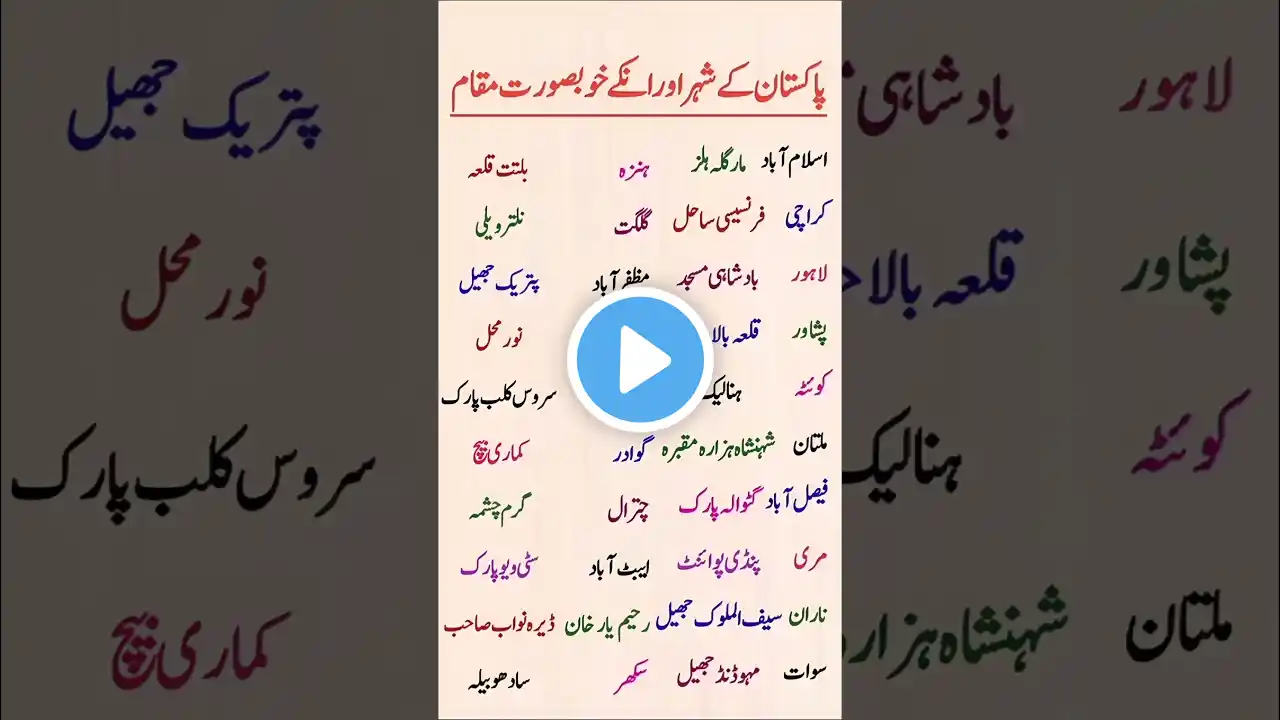 پاکستان کے شہر اور انکے خوبصورت مقام
اسلام آباد مارگلہ ہلز ہنزہ بلتت قلعہ
کراچی فرنسیسی ساحل گلگت نلتر ویلی
لاہور بادشاہی مسجد مظفر آباد پتریک جھیل
پشاور قلعہ بالا نور محل
کوئٹہ ہنا لیک سروس کلب پارک
ملتان شہنشاہ ہزارہ مقبرہ گوادر کماری بیچ
فیصل آباد گٹوالہ پارک چترال گرم چشمہ
مری پنڈی پوائنٹ ایبٹ آباد سٹی ویو پارک
ناران سیف الملوک جھیل رحیم یار خان ڈیرہ نواب صاحب
سوات مہوڈنڈ جھیل سکھر سادھو بیلہ
لاہور بادشاہی پتریک جھیل
پشاور قلعہ بالا نور محل
کوئٹہ ہنا لیک سروس کلب پارک
ملتان شہنشاہ ہزارہ کماری بیچ